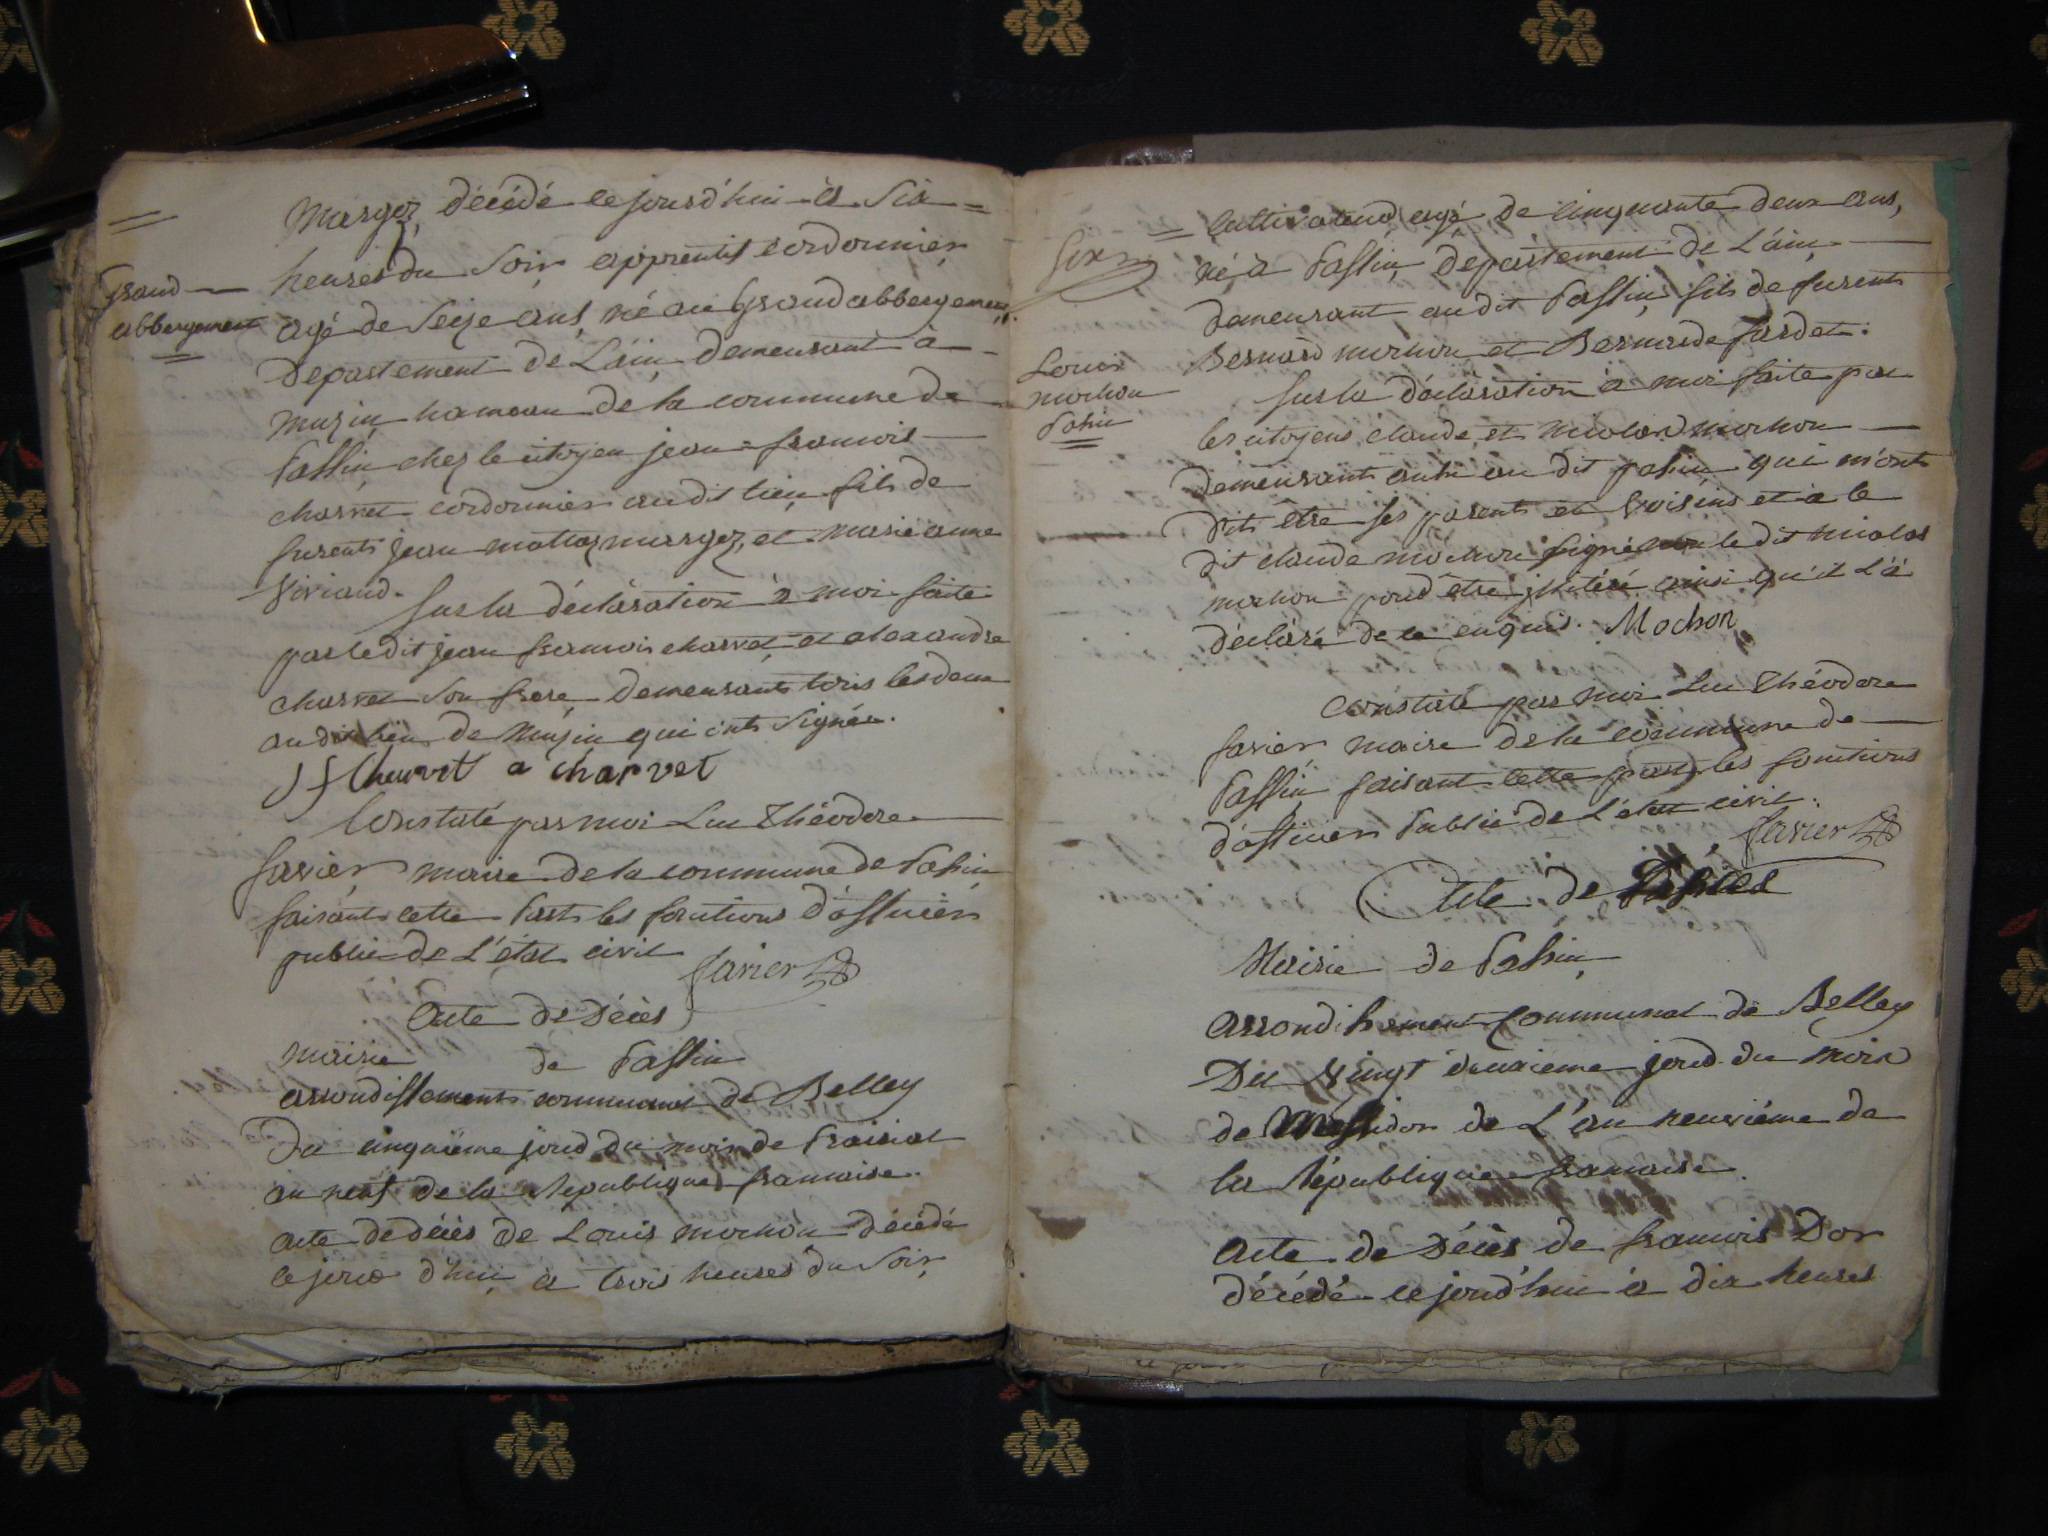 Margoz, décédé cejourd'hui à Six
heures du Soir, apprentif cordonnier,
Grand
abbergement
agé de Seize ans, né au Grand abbergement,
Departement de L'ain, demeurant à
Muzin hameau de la commune de
Passin, chez le citoyen jean=francois
charvet cordonnier au dit lieu, fils de
furents jean margoz, et marie anne
Viviand.
Sur la déclaration à moi faite
par ledit jean francois charvet, et alexandre
charvet Son frere, demeurants tous les deux
au dit lieu de Muzin qui ont Signés.
J f Charvet a charvet
Constaté par moi Luc Théodore
favier, maire de la commune de Passin
faisant cette Part les fonctions d'officier
public de L'état civil favier
Acte de Décès
mairie de Passin
arrondissement communal de Belley
Du cinquieme jour du mois de Prairial
an neuf de la République francaise.
acte de décès de Louis mochon décédé
le jour d'hui, à trois heures du Soir,
cultivateur, agé de cinquante deux ans,
né à Passin, département de L'ain,
demeurant au dit Passin, fils de furents
Bernard mochon et Bernarde fardet.
Louis
mochon
Passin
Sur la déclaration à moi faite par
les citoyens claude, et nicolas mochon
demeurants au dit passin qui m'ont
dits être ses parents et Voisins et à le
dit claude mochon signé non le dit nicolas
mochon pour être illitéré ainsi qu'il l'à
déclaré de ce enquis. Mochon
Constaté par moi Luc Théodore
favier maire de la commune de
Passin faisant cette part, les fonctions
d'officier Public de L'état civil.
favier
Acte de Décès
Mairie de Passin,
arrondissement Communal de Belley
Du Vingt deuxieme jour du mois
de Messidor de L'an neuvième de
la République francaise.
Acte de Décès de francois Dor
décédé cejourd'hui à dix heures